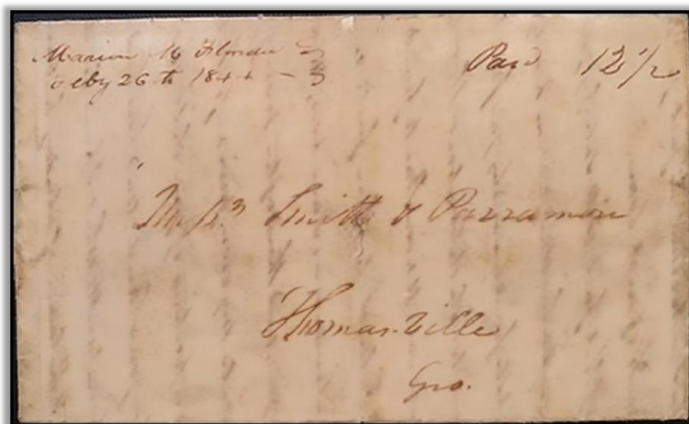 Marion M Florida
July 26th 1844
Paid 12 1/2
Mess.rs Smith & Parramore
Thomasville
Geo.